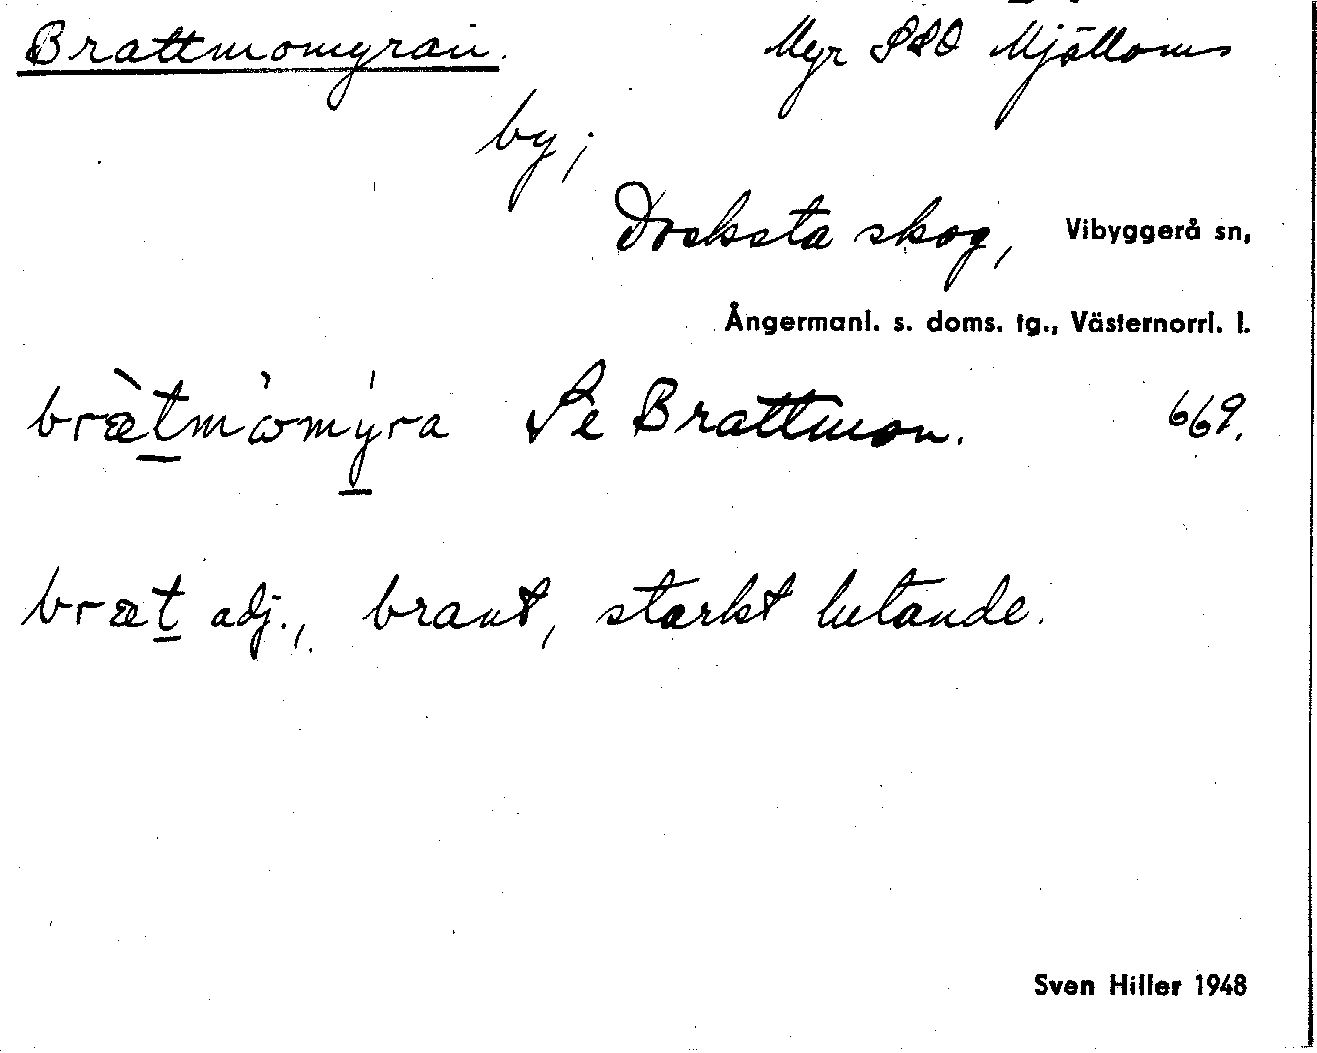 Brattmomyran. Myr SSO Mjälloms
by;
Docksta skog, Vibyggerå sn,
Ångermanl. s. doms. tg., Västernorrl. l.
bræ̀tmòmýra Se Brattmon. 669.
bræt adj., brant, starkt lutande.
Sven Hiller 1948